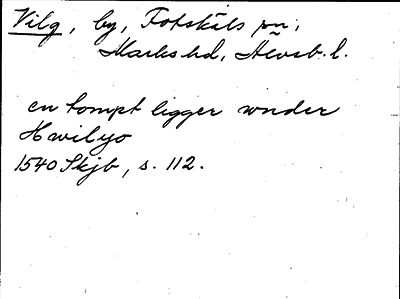 Vilg, by, Fotskäls sn,
Marks hd, Älvsb. l.
en tompt ligger wnder
Hwilyo
1540 Skjb, s. 112.